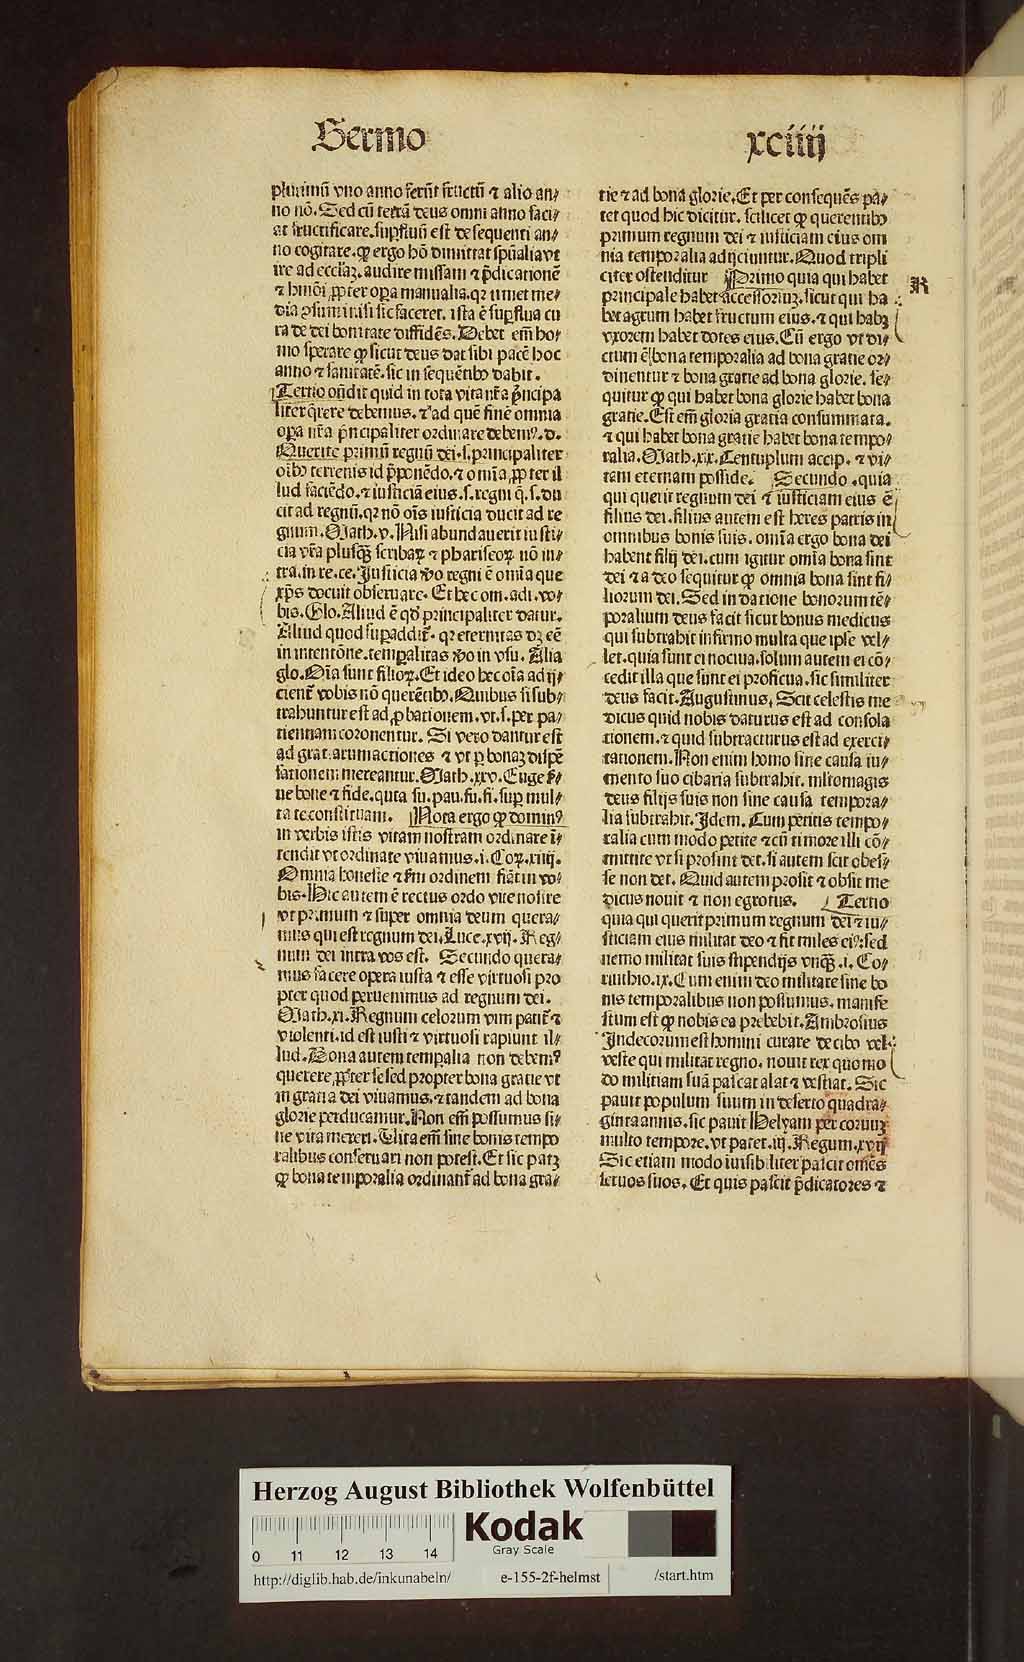 Sermo
xciiij
plurimū vno anno ferūt fructū ⁊ alio an⸗
no nō. Sed cū terrā deus omni anno faci⸗
at fructificare. suꝑfluū est de sequenti an⸗
no cogitare. ꝙ ergo hō dimittat spūalia vt
ire ad eccłiaꝫ. audire missam ⁊ p̄dicationē
⁊ hmōi ꝓpter oꝑa manualia. qꝛ timet me⸗
dia ꝯsumi nisi sic faceret. ista ē suꝑflua cu
ra de dei bonitate diffidēs. Debet em̄ ho⸗
mo sperare ꝙ sicut deus dat sibi pacē hoc
anno ⁊ sanitatē. sic in sequētibꝰ dabit.
Tertio oñdit quid in tota vita nr̄a p̄ncipa
liter q̄rere debemus. ⁊ ad quē finē omnia
oꝑa nr̄a p̄ncipaliter ordinare debemꝰ. d.
Querite primū regnū dei. s. principaliter
oībꝰ terrenis id p̄ponēdo. ⁊ omīa ꝓpter il
lud faciēdo. ⁊ iusticiā eius. s. regni q̄. s. du
cit ad regnū. qꝛ nō oīs iusticia ducit ad re
gnum. Math. v. Nisi abundauerit iusti⸗
cia vr̄a plusqꝫ̄ scribaꝝ ⁊ phariseoꝝ nō in⸗
tra. in re. ce. Iusticia v̊o regni ē omīa que
xp̄s docuit obseruare. Et hec om. adi. vo⸗
bis. Glo. Aliud ē qd̓ principaliter datur.
Aliud quod suꝑaddit̄. qꝛ eternitas dꝫ eē
in intentōne. temꝑalitas v̊o in vsu. Alia
glo. Oīa sunt filioꝝ. Et ideo hec oīa adij⸗
cient̄ vobis nō querētibꝰ. Quibus si sub⸗
trahuntur est ad ꝓbationem. vt. s. per pa⸗
tientiam coronentur. Si vero dantur est
ad gratiarum actiones ⁊ vt ꝑ bonaꝫ dispē
sationem mereantur. Math. xxv. Euge ẜ⸗
ue bone ⁊ fide. quia su. pau. fu. fi. sup mul⸗
ta te constituam. Nota ergo ꝙ dominꝰ
in verbis istis vitam nostram ordinare ī⸗
tendit vt ordinate viuamus. i. Coꝝ. xiiij.
Omnia honeste ⁊ ẜm ordinem fiāt in vo⸗
bis. Hic autem ē rectus ordo vite nostre
vt primum ⁊ super omnia deum quera⸗
mus qui est regnum dei. Luce. xvij. Reg⸗
num dei intra vos est. Secundo quera⸗
mus facere opera iusta ⁊ esse virtuosi pro
pter quod peruenimus ad regnum dei.
Math. xi. Regnum celorum vim patit̄ ⁊
violenti. id est iusti ⁊ virtuosi rapiunt il⸗
lud. Bona autem temꝑalia non debemꝰ
querere ꝓpter se sed propter bona gratie vt
in gratia dei viuamus. ⁊ tandem ad bona
glorie perducamur. Non em̄ possumus si⸗
ne vita mereri. Vita em̄ sine bonis tempo
ralibus conseruari non potest. Et sic patꝫ
ꝙ bona temporalia ordinant̄ ad bona gra⸗
tie ⁊ ad bona glorie. Et per consequēs pa⸗
tet quod hic dicitur. scilicet ꝙ querentibꝰ
primum regnum dei ⁊ iusticiam eius om
nia temporalia adijciuntur. Quod tripli
citer ostenditur Primo quia qui habet
principale habet accessoriuꝫ. sicut qui ha
bet agrum habet fructum eius. ⁊ qui habꝫ
vxorem habet dotes eius. Cū ergo vt di⸗
ctum ē bona temporalia ad bona gratie or⸗
dinentur ⁊ bona gratie ad bona glorie. se⸗
quitur ꝙ qui habet bona glorie habet bona
gratie. Est em̄ gloria gratia consummata.
⁊ qui habet bona gratie habet bona tempo⸗
ralia. Math. xix. Centuplum accip. ⁊ vi⸗
tam eternam posside. Secundo. quia
qui querit regnum dei ⁊ iusticiam eius ē
filius dei. filius autem est heres patris in
omnibus bonis suis. omīa ergo bona dei
habent filij dei. cum igitur omīa bona sint
dei ⁊ a deo sequitur ꝙ omnia bona sint fi⸗
liorum dei. Sed in datione bonorum tē⸗
poralium deus facit sicut bonus medicus
qui subtrahit infirmo multa que ipse vel⸗
let. quia sunt ei nociua. solum autem ei cō⸗
cedit illa que sunt ei proficua. sic similiter
deus facit. Augustinus. Scit celestis me
dicus quid nobis daturus est ad consola
tionem. ⁊ quid subtracturus est ad exerci⸗
tationem. Non enim homo sine causa iu⸗
mento suo cibaria subtrahit. mltomagis
deus filijs suis non sine causa tempora⸗
lia subtrahit. Idem. Cum petitis tempo⸗
ralia cum modo petite ⁊ cū timore illi cō⸗
mittite vt si prosint det. si autem scit obes⸗
se non det. Quid autem prosit ⁊ obsit me
dicus nouit ⁊ non egrotus. Tertio
quia qui querit primum regnum dei ⁊ iu⸗
sticiam eius militat deo ⁊ fit miles eiꝰ. sed
nemo militat suis stipendijs vnqꝫ̄. i. Co⸗
rinthio. ix. Cum enim deo militare sine bo
nis temporalibus non possumus. manife
stum est ꝙ nobis ea prebebit. Ambrosius
Indecorum est homini curare de cibo vel
veste qui militat regno. nouit rex quomo
do militiam suā pascat alat ⁊ vestiat. Sic
pauit populum suum in deserto quadra⸗
ginta annis. sic pauit Helyam per coruuꝫ
multo tempore. vt patet. iij. Regum. xvij
Sic etiam modo inuisibiliter pascit omēs
seruos suos. Et quis pascit p̄dicatores ⁊
R
Herzog August Bibliothek Wolfenbüttel
Kodak
Gray Scale
0 11 12 13 14
http://diglib.hab.de/inkunabeln/ e-155-2f-helmst /start.htm